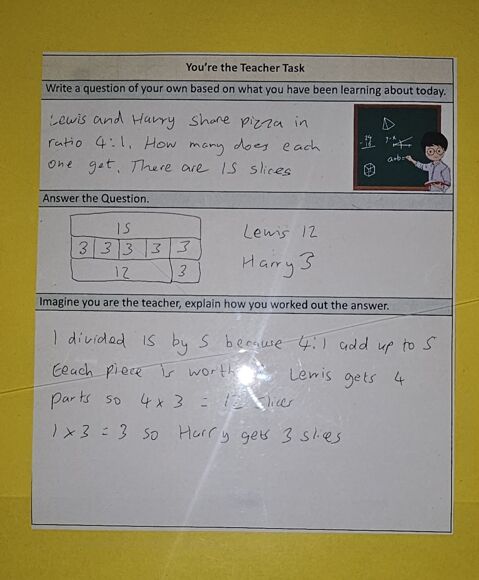 You're the Teacher Task
Write a question of your own based on what you have been learning about today.
Lewis and Harry share pizza in
ratio 4:1. How many does each
one get. There are 15 slices
Answer the Question.
15
3 3 3 3 3
12 3
Lewis 12
Harry 3
Imagine you are the teacher, explain how you worked out the answer.
I divided 15 by 5 because 4:1 add up to 5
Eeach piece is worth Lewis gets 4
parts so 4 x 3 = slices
1 x 3 = 3 so Harry gets 3 slices